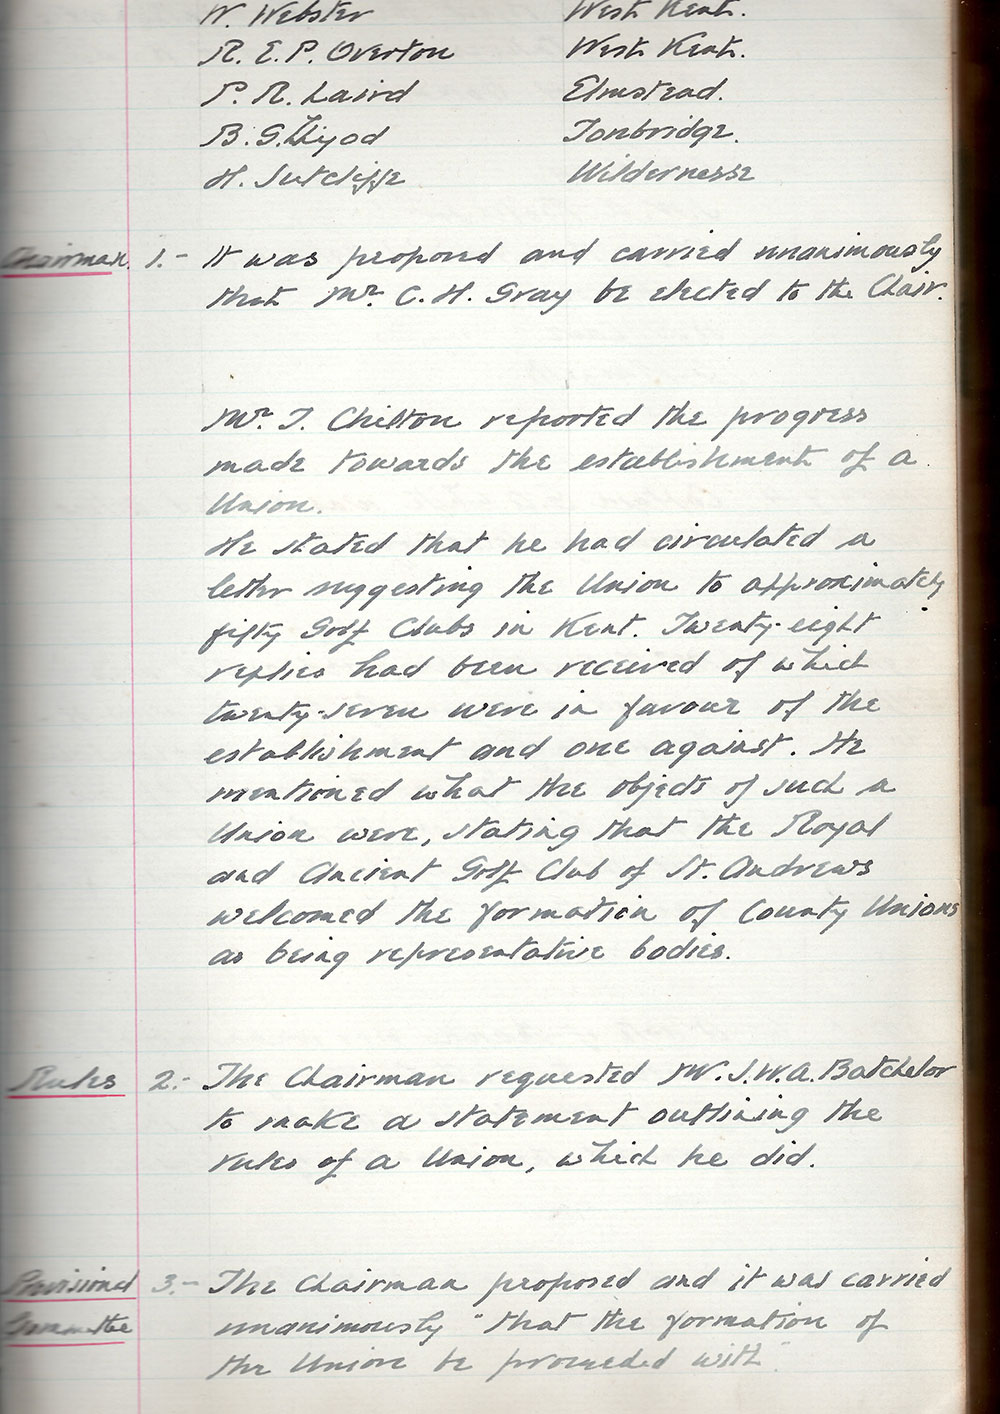 W. Webster West Kent.
R. E. P. Overton West Kent.
P. R. Laird Elmstead.
B. G. Llyod Tonbridge.
H. Sutcliffe Wildernesse
Chairman. 1.- It was proposed and carried unanimously
that Mr. C. H. Gray be elected to the Chair.
Mr. T. Chilton reported the progress
made towards the establishment of a
Union.
He stated that he had circulated a
letter suggesting the Union to approximately
fifty Golf Clubs in Kent. Twenty-eight
replies had been received of which
twenty-seven were in favour of the
establishment and one against. He
mentioned what the objects of such a
Union were, stating that the Royal
and Ancient Golf Club of St. Andrews
welcomed the formation of County Unions
as being representative bodies.
Rules 2.- The Chairman requested Mr. J.W.A. Batchelor
to make a statement outlining the
rules of a Union, which he did.
Provisional 3.- The Chairman proposed and it was carried
Committee unanimously "that the formation of
the Union be proceeded with"